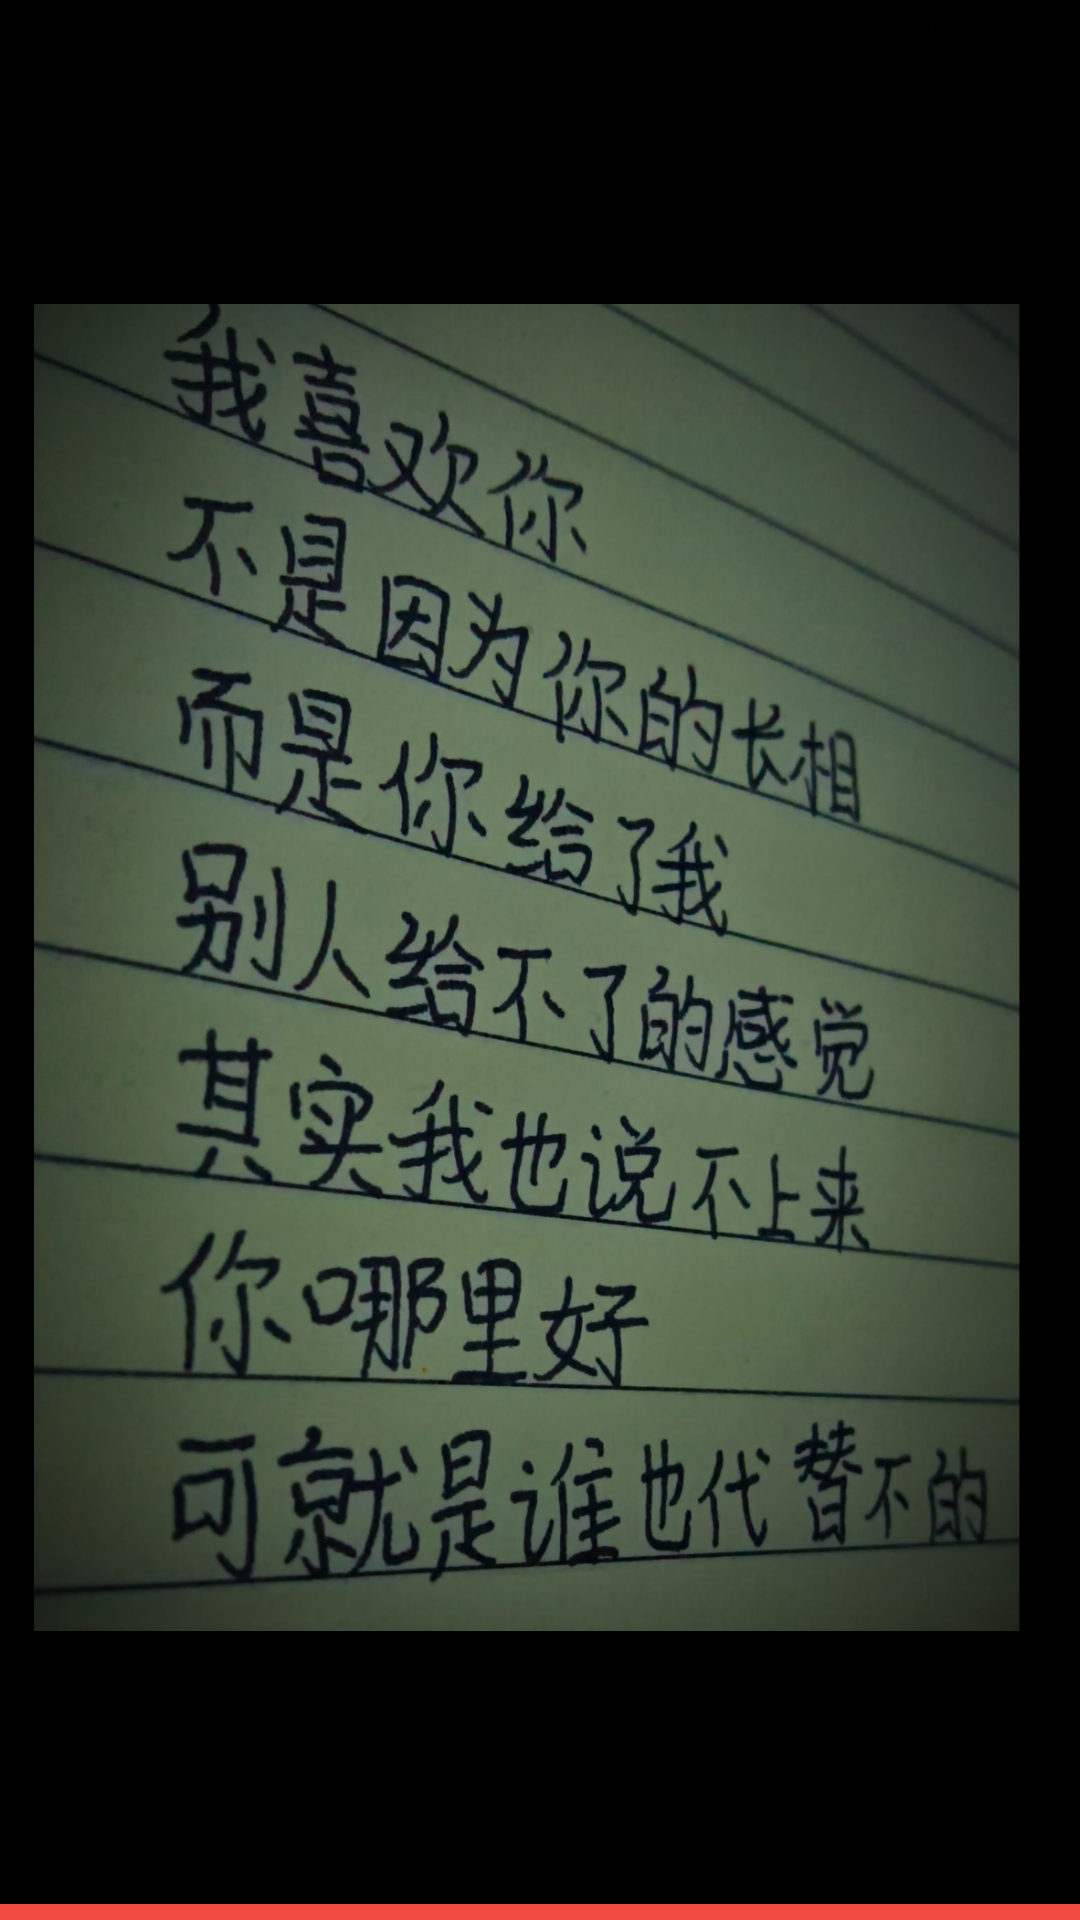 我喜欢你
不是因为你的长相
而是你给了我
别人给不了的感觉
其实我也说不上来
你哪里好
可就是谁也代替不的